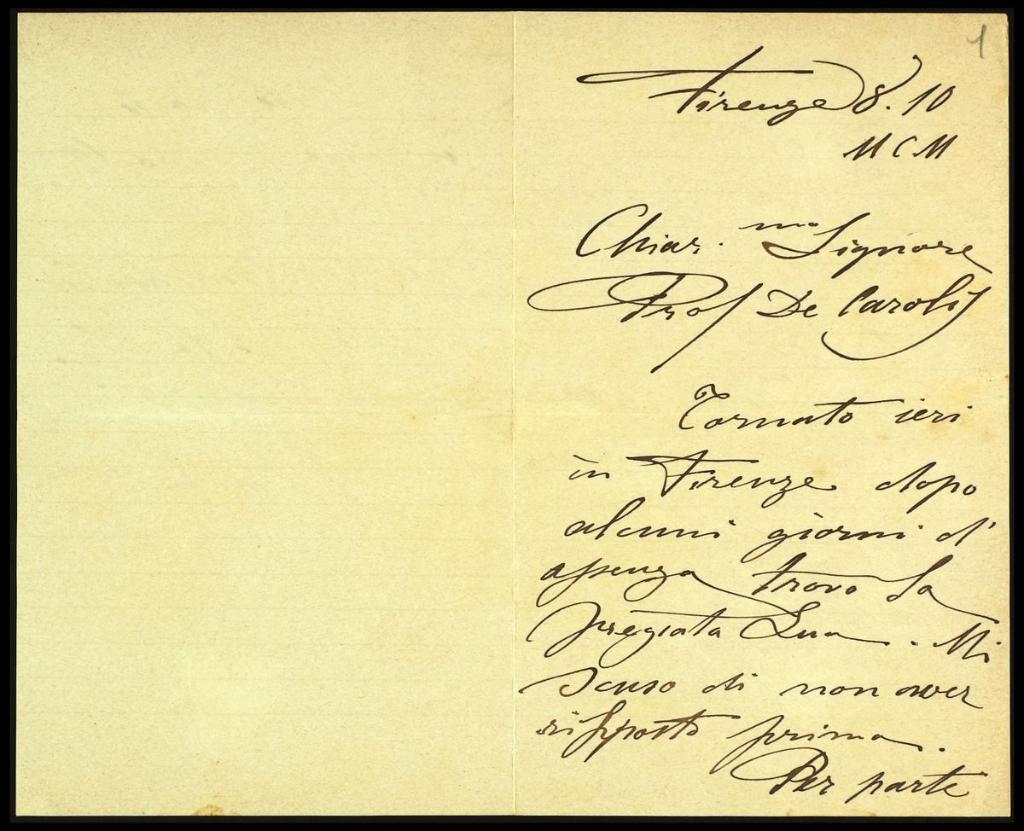 1
Firenze 8.10
MCM
Chiar.mo Signore
Prof De Carolis
Tornato ieri
in Firenze dopo
alcuni giorni d'
assenza trovo la
pregiata Sua. Mi
scuso di non aver
risposto prima.
Per parte